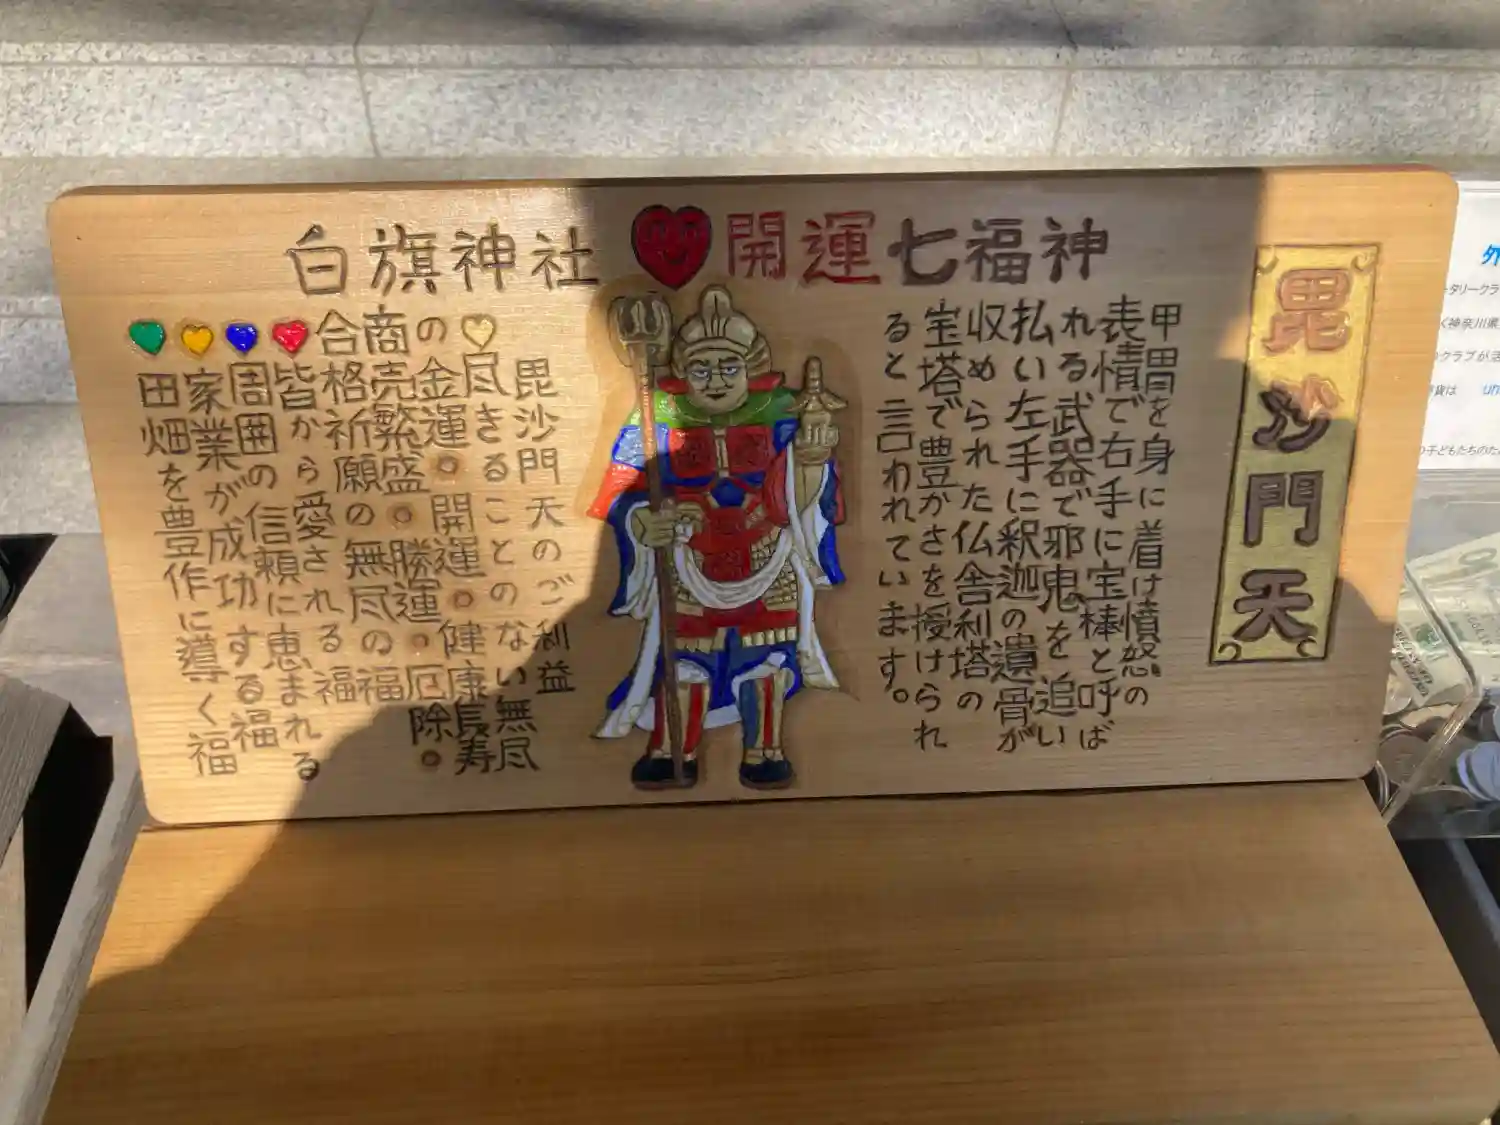 白旗神社 開運七福神
毘沙門天
甲冑を身に着け憤怒の
表情で右手に宝棒と呼ば
れる武器で邪鬼を追い
払い左手に釈迦の遺骨が
収められた仏舎利塔の
宝塔で豊かさを授けられ
ると言われています。
毘沙門天のご利益
尽きることのない無尽
の金運。開運。健康長寿
商売繁盛。勝運。厄除。
合格祈願の無尽の福
皆から愛される福
周囲の信頼に恵まれる
家業が成功する福
田畑を豊作に導く福
ータリークラ
く神奈川県
クラブが活
貨は
子どもたちのた